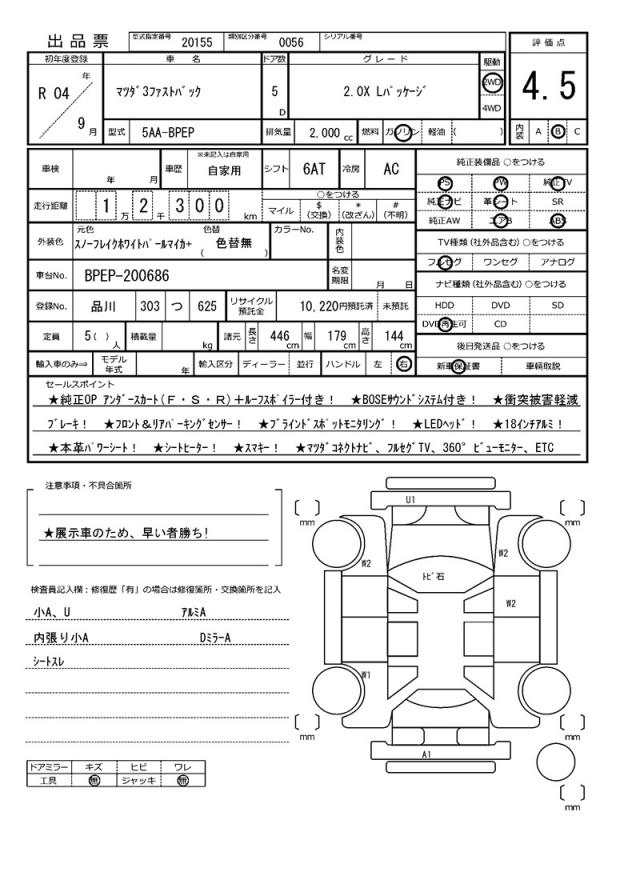 出品票
型式指定番号 20155 類別区分番号 0056 シリアル番号
評価点
4.5
内装 A B C
初年度登録 車名 ドア数 グレード 駆動
R 04 年 9 月 マツダ3ファストバック 5 D 2.0X Lパッケージ 2WD 4WD
型式 5AA-BPEP 排気量 2,000 cc 燃料 ガソリン 軽油 ( )
車検 年 月 車歴 ※未記入は自家用 自家用 シフト 6AT 冷房 AC
走行距離 1 万 2 千 3 0 0 km ○をつける マイル $ (交換) * (改ざん) # (不明)
外装色 元色 スノーフレイクホワイトパールマイカ+ 色替 ( 色替無 ) カラーNo. 内装色
車台No. BPEP-200686 名変期限 月 日
登録No. 品川 303 つ 625 リサイクル預託金 10,220円預託済 未預託
定員 5( ) 人 積載量 kg 諸元 長さ 446 cm 幅 179 cm 高さ 144 cm
輸入車のみ⇒ モデル年式 年 輸入区分 ディーラー 並行 ハンドル 左 右
純正装備品 ○をつける
PS PW 純正TV
純正ナビ 革シート SR
純正AW エアB ABS
TV種類 (社外品含む) ○をつける
フルセグ ワンセグ アナログ
ナビ種類 (社外品含む) ○をつける
HDD DVD SD
DVD再生可 CD
後日発送品 ○をつける
新車保証書 車輌取説
セールスポイント
★純正OP アンダースカート(F・S・R)+ルーフスポイラー付き! ★BOSEサウンドシステム付き! ★衝突被害軽減
ブレーキ! ★フロント&リアパーキングセンサー! ★ブラインドスポットモニタリング! ★LEDヘッド! ★18インチアルミ!
★本革パワーシート! ★シートヒーター! ★スマキー! ★マツダコネクトナビ、フルセグTV、360°ビューモニター、ETC
注意事項・不具合箇所
★展示車のため、早い者勝ち!
検査員記入欄:修復歴「有」の場合は修復箇所・交換箇所を記入
小A、U アルミA
内張り小A DミラーA
シートスレ
ドアミラー キズ ヒビ ワレ
工具 無 ジャッキ 無
U1
mm mm
W2 W2
トビ石
W2
W1
mm mm
A1
mm